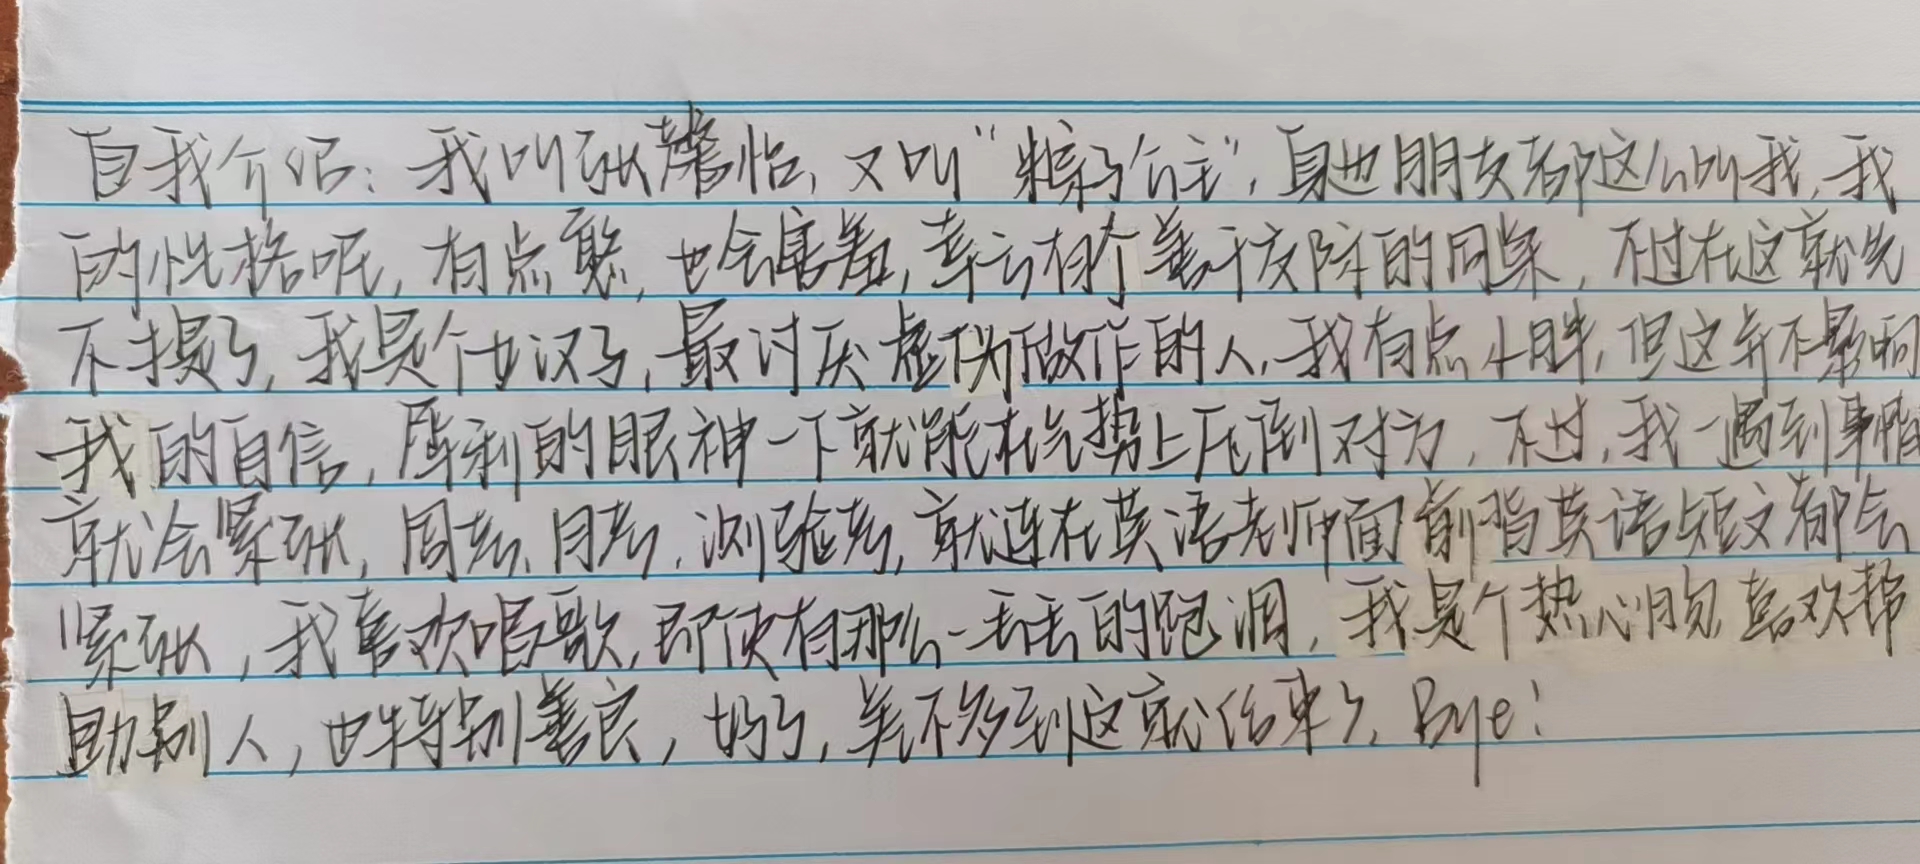 自我介绍：我叫张馨怡，又叫“粽子公主”，身边朋友都这么叫我，我
的性格呢，有点憨，也会害羞，幸亏有个善于交际的同桌，不过在这就先
不提了，我是个女汉子，最讨厌虚伪做作的人，我有点小胖，但这并不影响
我的自信，犀利的眼神一下就能在气势上压倒对方，不过，我一遇到事情
就会紧张，周考、月考，测验考，就连在英语老师面前背英语短文都会
紧张，我喜欢唱歌，即使有那么一丢丢的跑调，我是个热心肠，喜欢帮
助别人，也特别善良，好了，差不多到这就结束了，Bye！